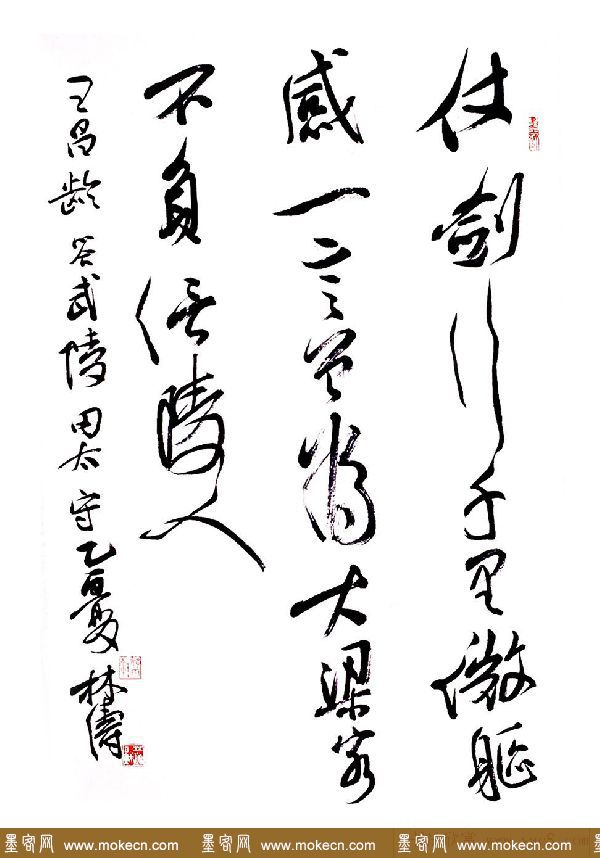 仗劍行千里微軀
感一言曾為大梁客
不負信陵人
王昌齡答武陵田太守乙酉夏林濤
墨客网 www.mokecn.com 墨客网 www.mokecn.com 墨客网 www.mokecn.com